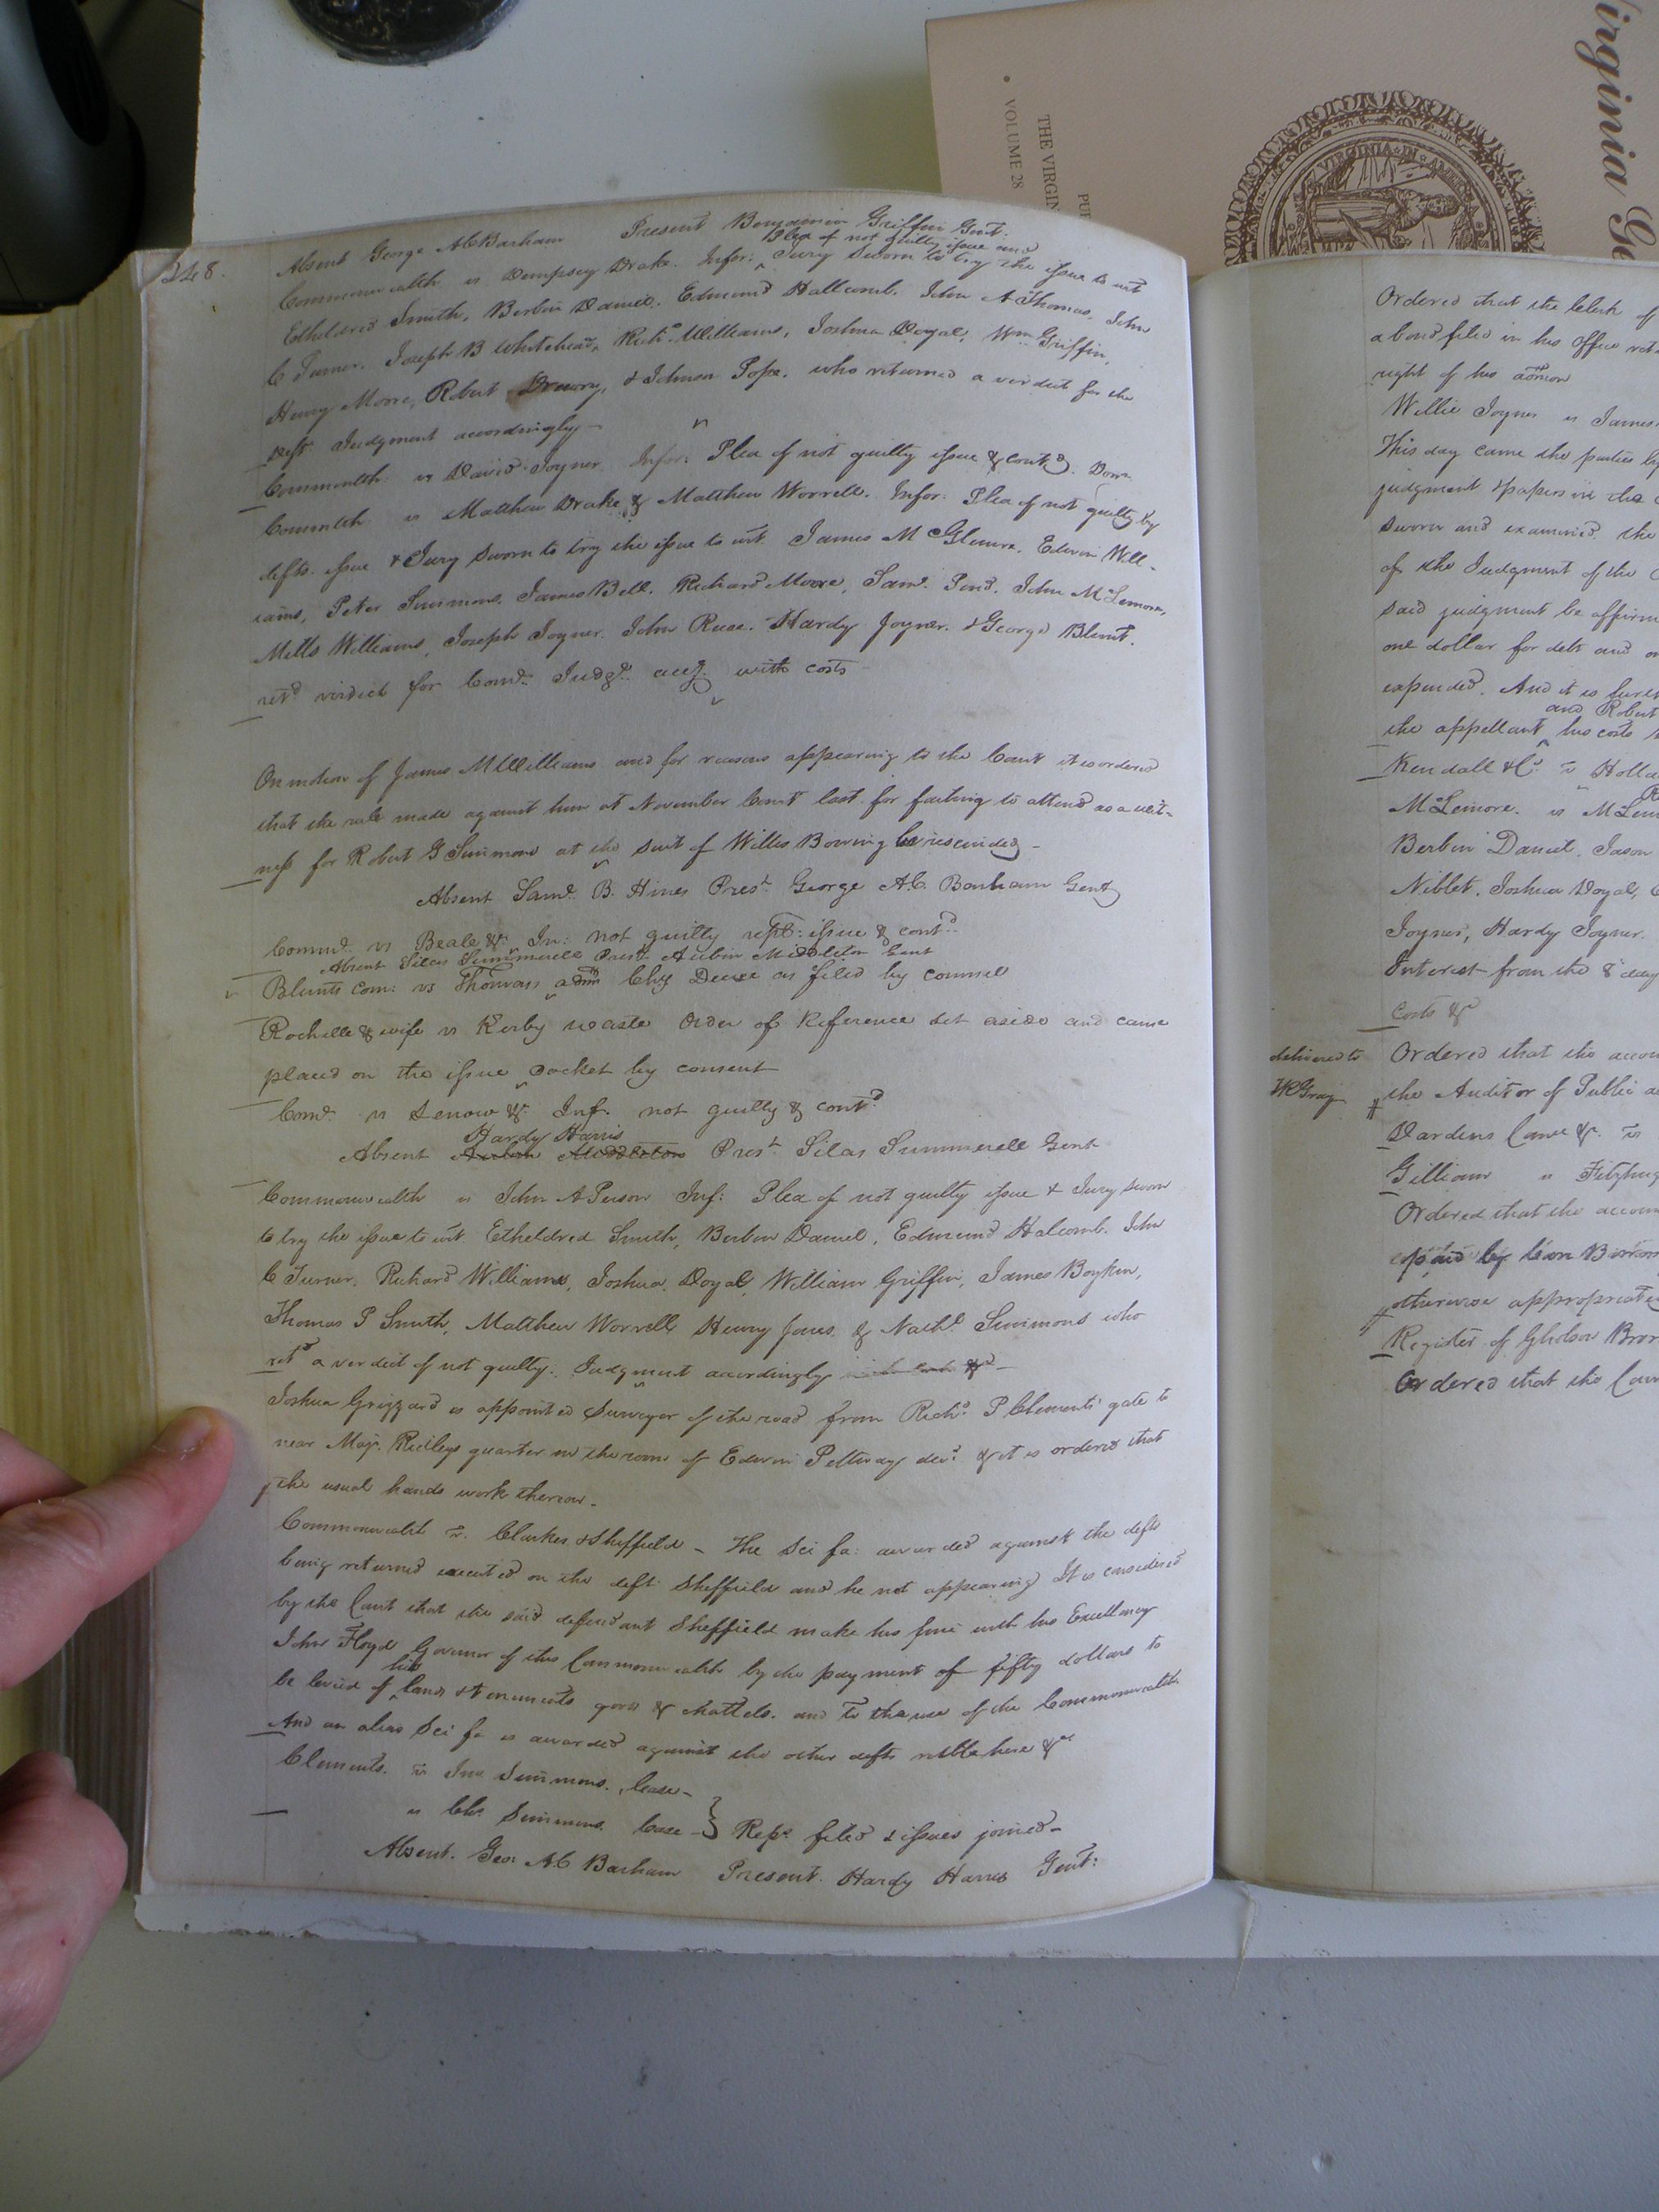 Virginia Ge
VIRGINIA IN AMER
PU
THE VIRGIN
VOLUME 28
248.
Absent George A C Barham Present Benjamin Griffin Gent.
Plea of not guilty issue and
Commonwealth vs Dempsey Drake. Infor: ^ Jury sworn to try the issue to wit
Etheldred Smith, Berbin Daniel, Edmund Hallcomb. John A Thomas, John
C Turner. Joseph B Whitehead, Richd. Williams, Joshua Doyal, Wm. Griffin,
Henry Moore, Robert Drewry, & Johnson Pope. who returned a verdict for the
Deft Judgment accordingly
Commonlth. vs David Joyner. Infor: Plea of not guilty issue & contd.
Commlth vs Matthew Drake & Matthew Worrell. Infor: Plea of not guilty by
defts. issue & Jury sworn to try the issue to wit. James M Glemore, Edwin Will-
iams, Peter Simmons, James Bell, Richard Moore, Saml. Pond, John McLemore,
Mills Williams, Joseph Joyner. John Rose. Hardy Joyner. & George Blunt.
retd. verdict for Comth. Judgt. accg. with costs
On motion of James M Williams and for reasons appearing to the Court it is ordered
that the rule made against him at November Court last for failing to attend as a wit-
ness for Robert G Simmons at the suit of Willis Bowing be rescinded -
Absent Saml. B. Hines Prest. George A C. Barham Gent
Commth. vs Beale &c. In: not guilty repl: issue & contd.
Absent Silas Summerell Prest. Aubin Middleton Gent
Blunts com: vs Thomas admr Chy Decree as filed by counsel
Rochelle & wife vs Kerby waste Order of Reference set aside and came
placed on the issue docket by consent
Comth. vs Lenow &c. Inf. not guilty & contd.
Hardy Harris
Absent Aubin Middleton Prest. Silas Summerell Gent
Commonwealth vs John A Person Inf: Plea of not guilty issue & Jury sworn
to try the issue to wit. Etheldred Smith, Berbin Daniel, Edmund Halcomb. John
C Turner. Richard Williams, Joshua Doyal, William Griffin, James Boykin,
Thomas P Smith, Matthew Worrell, Henry Jones & Nathl. Simmons who
retd a verdict of not guilty. Judgment accordingly
Joshua Grizzard is appointed Surveyor of the road from Richd. P Clements' gate to
near Maj. Ridleys quarter in the room of Edwin Pettway decd. & it is ordered that
the usual hands work thereon.
Commonwealth vs. Clarkes & Sheffield - The Sci fa: awarded against the defts
being returned executed on the deft. Sheffield and he not appearing It is considered
by the Court that the said defendant Sheffield make his fine with his Excellency
John Floyd Governor of this Commonwealth by the payment of fifty dollars to
his
be levied of ^ lands & tenements goods & chattels. and to the use of the Commonwealth
And an alias Sci fa is awarded against the other defts retble here &c
Clements. vs Jno Simmons. Case-
vs Chs. Simmons. Case - } Reps. filed & issues joined-
Absent. Geo: A C Barham Present. Hardy Harris Gent:
Ordered that the Clerk of
a bond filed in his Office
right of his admon
Willie Joyner vs James
This day came the parties by
judgment & papers in the
sworn and examined. the
of the Judgment of the
said judgment be affirm
one dollar for debt and
expended. And it is
and Robert
the appellant ^ his costs
Kendall & Co. vs Holla
McLemore. vs McLem
Berbin Daniel, Jason
Niblet. Joshua Doyal,
Joyner, Hardy Joyner.
Interest from the 8 day
costs &c
delivered to
Ordered that the accou
the Auditor of Public a
Dardens Came &c. vs
Gilliam vs Fitzhug
Ordered that the accoun
otherwise appropriated
Register of Gholson
Ordered that the